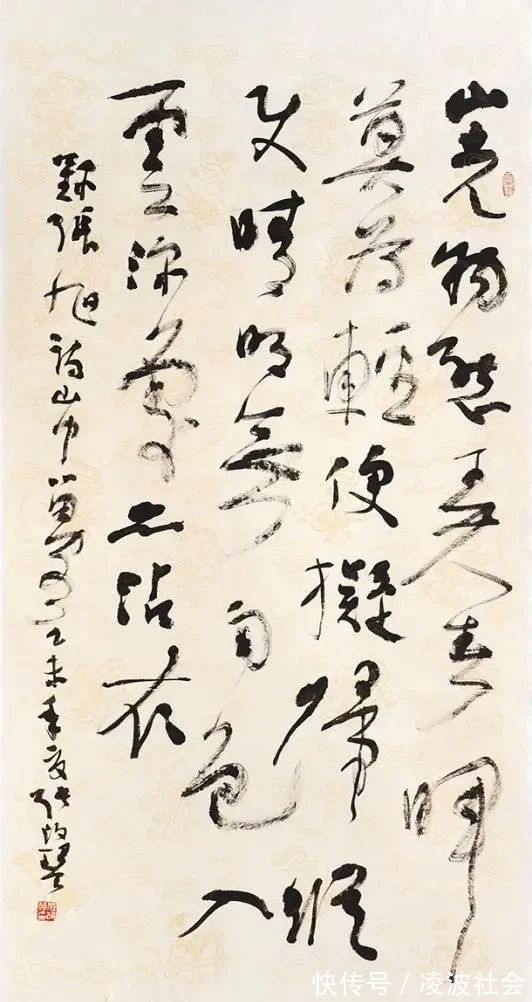 山光物態弄春暉
莫為輕便擬歸縱
使晴明無雨色入
雲深處亦沾衣
録張旭詩山中留客乙未年夏張
快传号 / 凌波社会